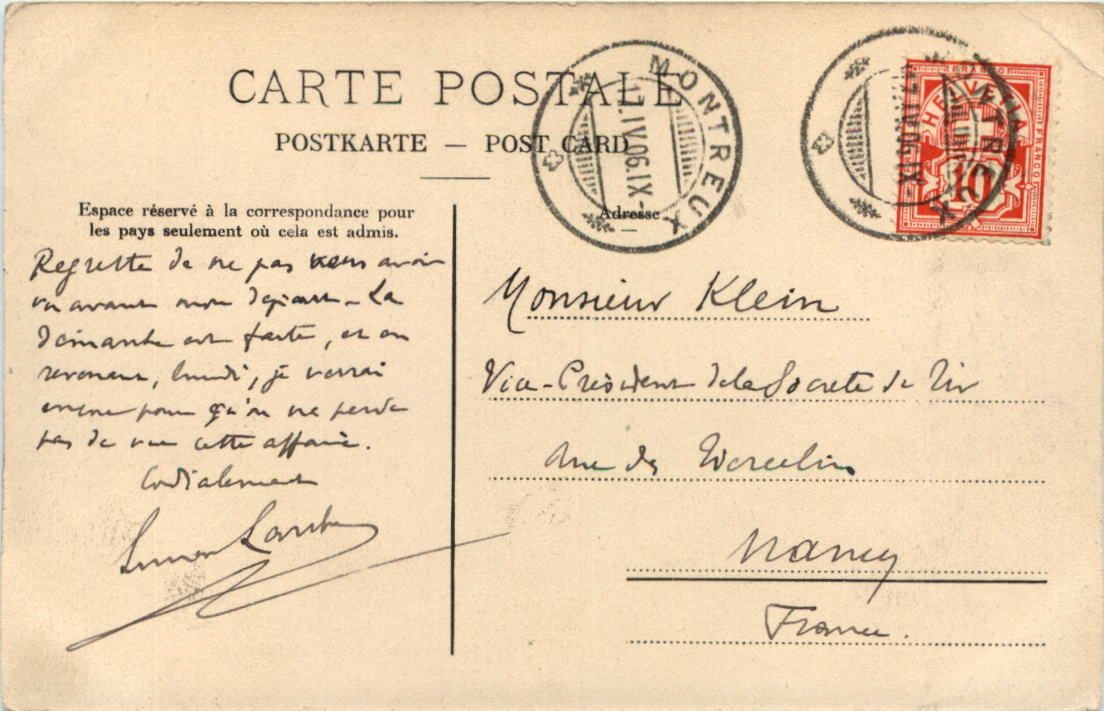 CARTE POSTALE
POSTKARTE — POST CARD
MONTREUX
17.IV.06.IX-
17.IV.06.IX-
HELVETIA
FRANCO
10
Espace réservé à la correspondance pour
les pays seulement où cela est admis.
Adresse
Regrette de ne pas vous avoir
vu avant mon départ. La
demande est faite, et en
revenant, lundi, je verrai
encore pour qu'on ne perde
pas de vue cette affaire.
Cordialement
Monsieur Klein
Vice-Président de la Société de Tir
rue des
Nancy
France.